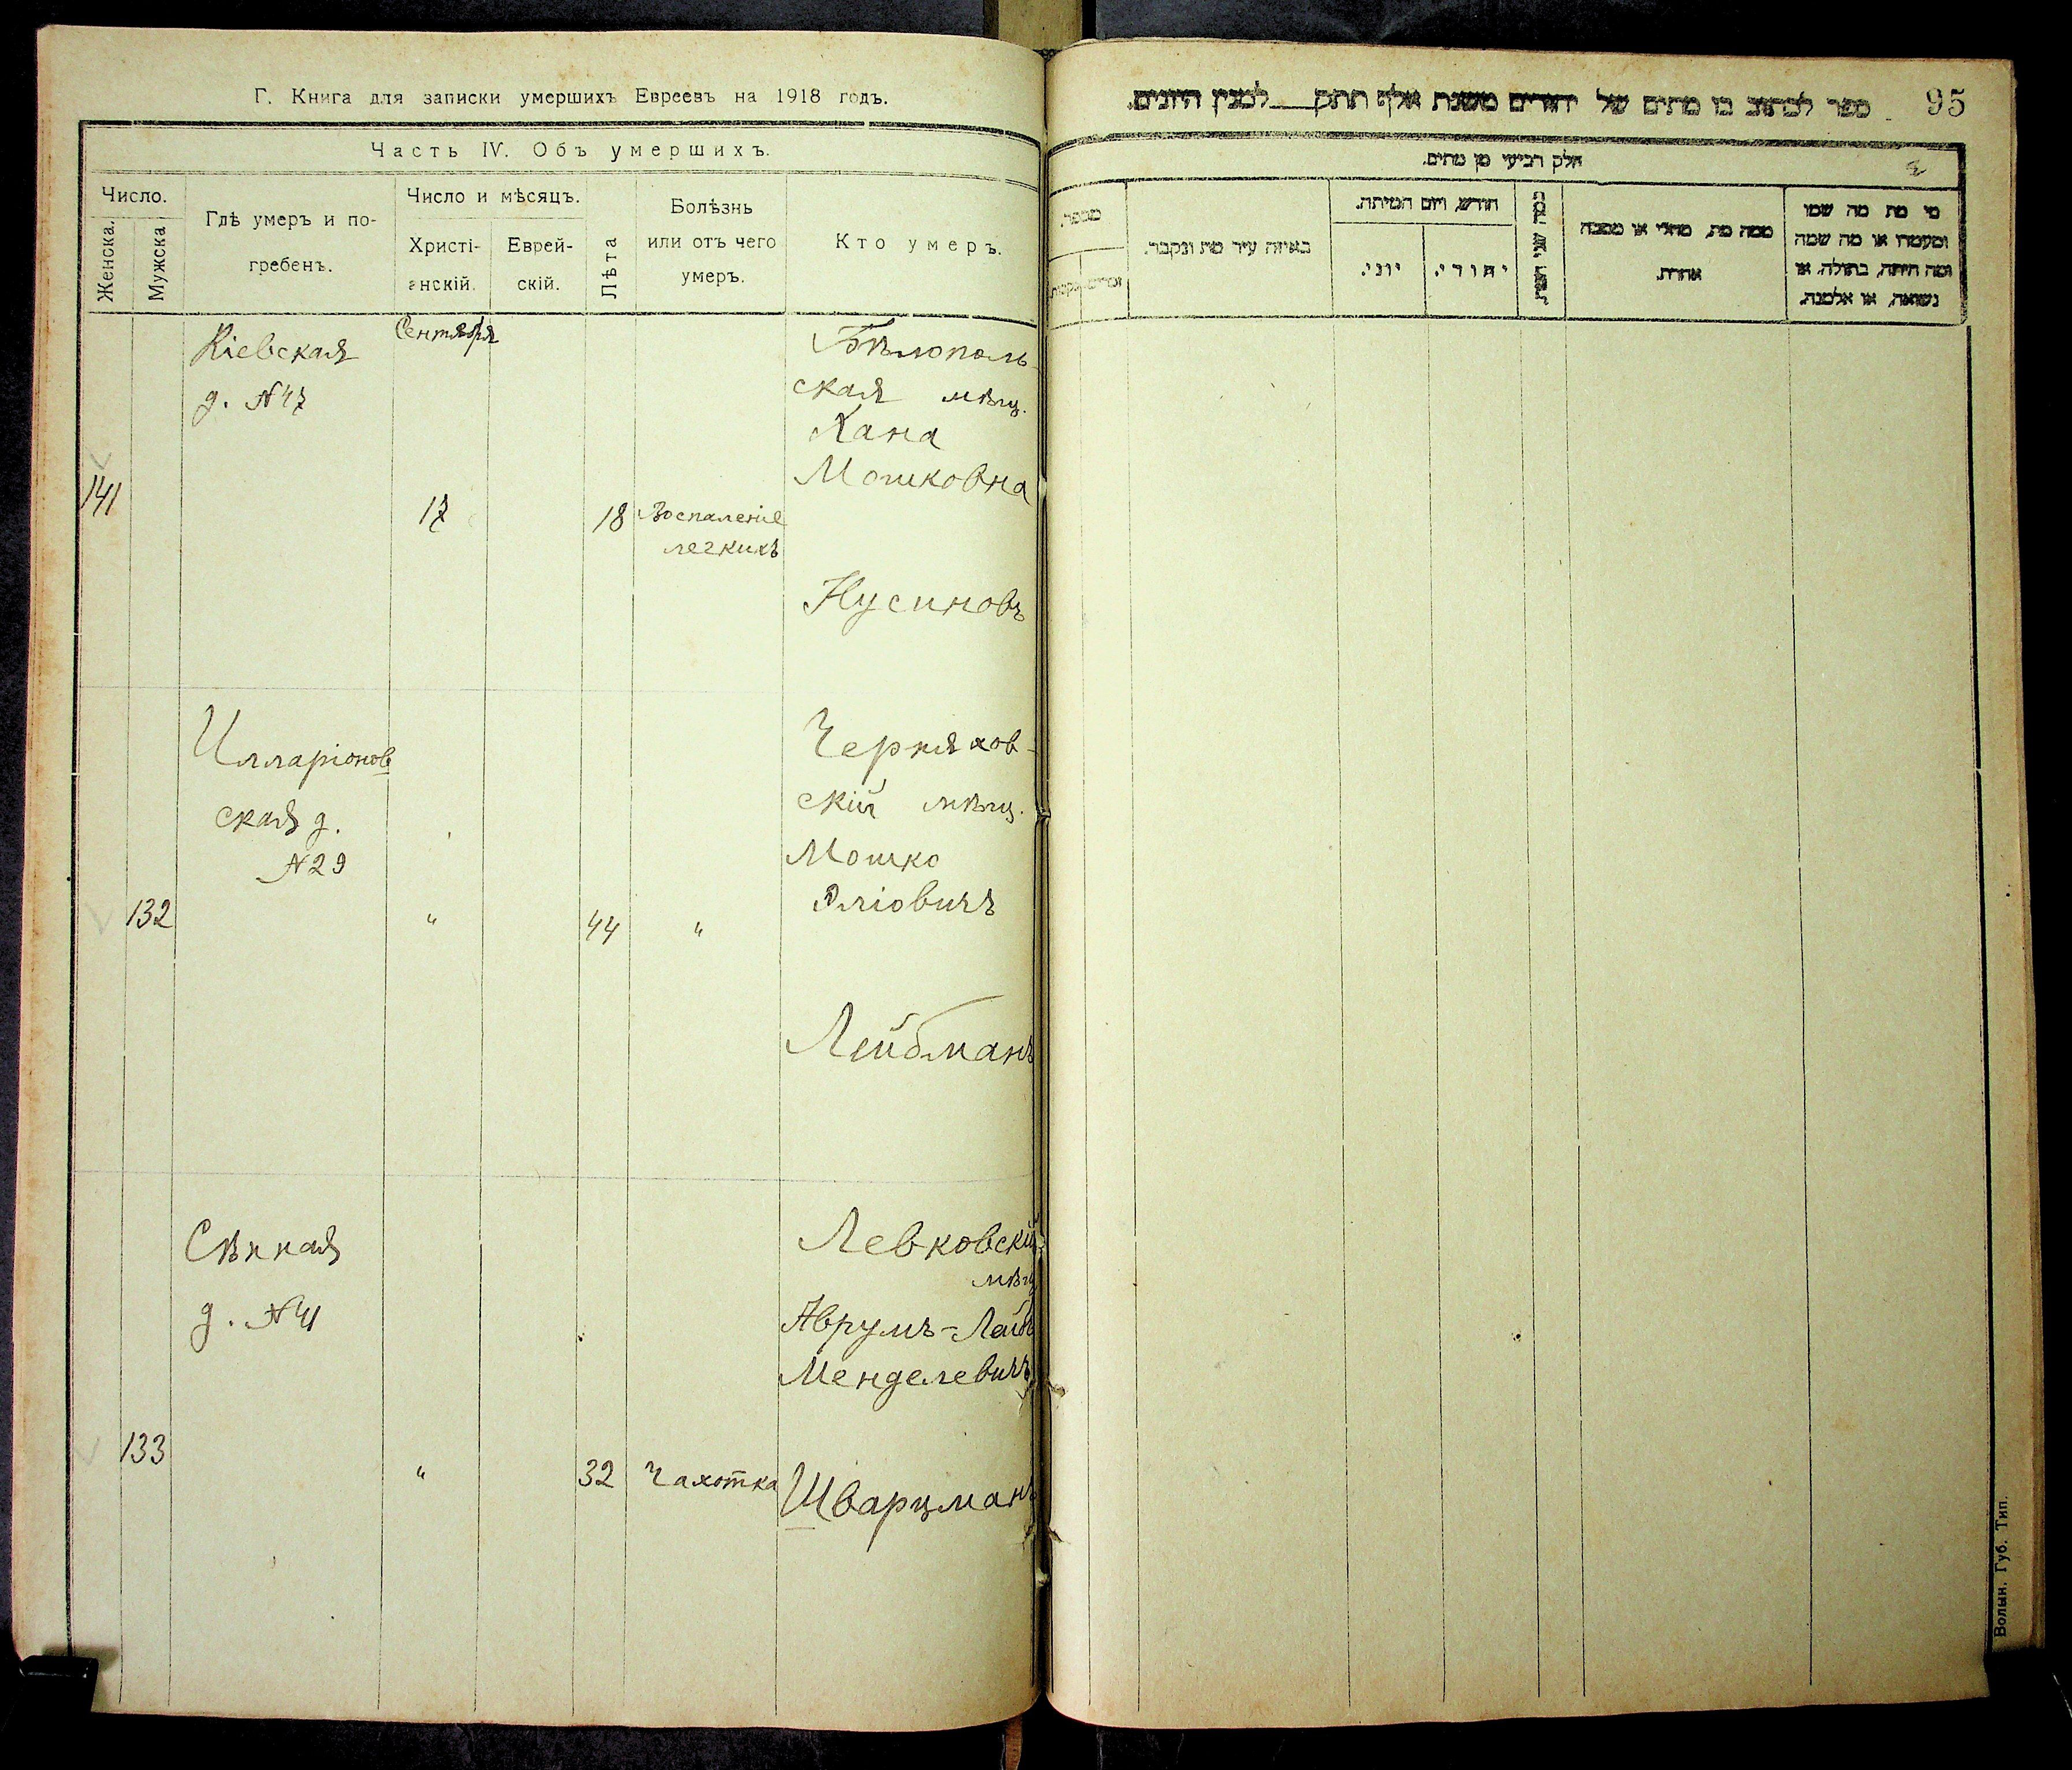 Г. Книга для записки умершихъ Евреевъ на 1918 годъ.
Часть IV. Объ умершихъ.
Число.
Женска.
Мужска
Гдѣ умеръ и по-
гребенъ.
Число и мѣсяцъ.
Христі-
анскій.
Еврей-
скій.
Лѣта
Болѣзнь
или отъ чего
умеръ.
Кто умеръ.
141
Кіевская
д. №47
Сентября
17
18
Воспаленіе
легкихъ
Бѣлополь-
ская мѣщ.
Хана
Мошковна
Нусиновъ
132
Илларіонов
ская д.
№29
"
44
"
Черняхов-
скій мѣщ.
Мошко
Эліовичъ
Лейбманъ
133
Сѣнная
д. №41
"
32
Чахотка
Левковскій
мѣщ
Аврумъ-Лейб
Менделевичъ
Шварцманъ
95
ספר לכתוב בו מתים של יהודים משנת אלף תתק לכנין היונים.
חלק רביעי מן מתים.
מספר.
זכרים
נקבות
באיזה עיר מת ונקבר.
חודש, ויום המיתה.
יוני.
יהודי.
ממה מת, מחלי או מסבה
אחרת.
מי מת מה שמו
ומעמדו או מה שמה
ומה היתה, בתולה, או
נשואה, או אלמנה.
Волын. Губ. Тип.